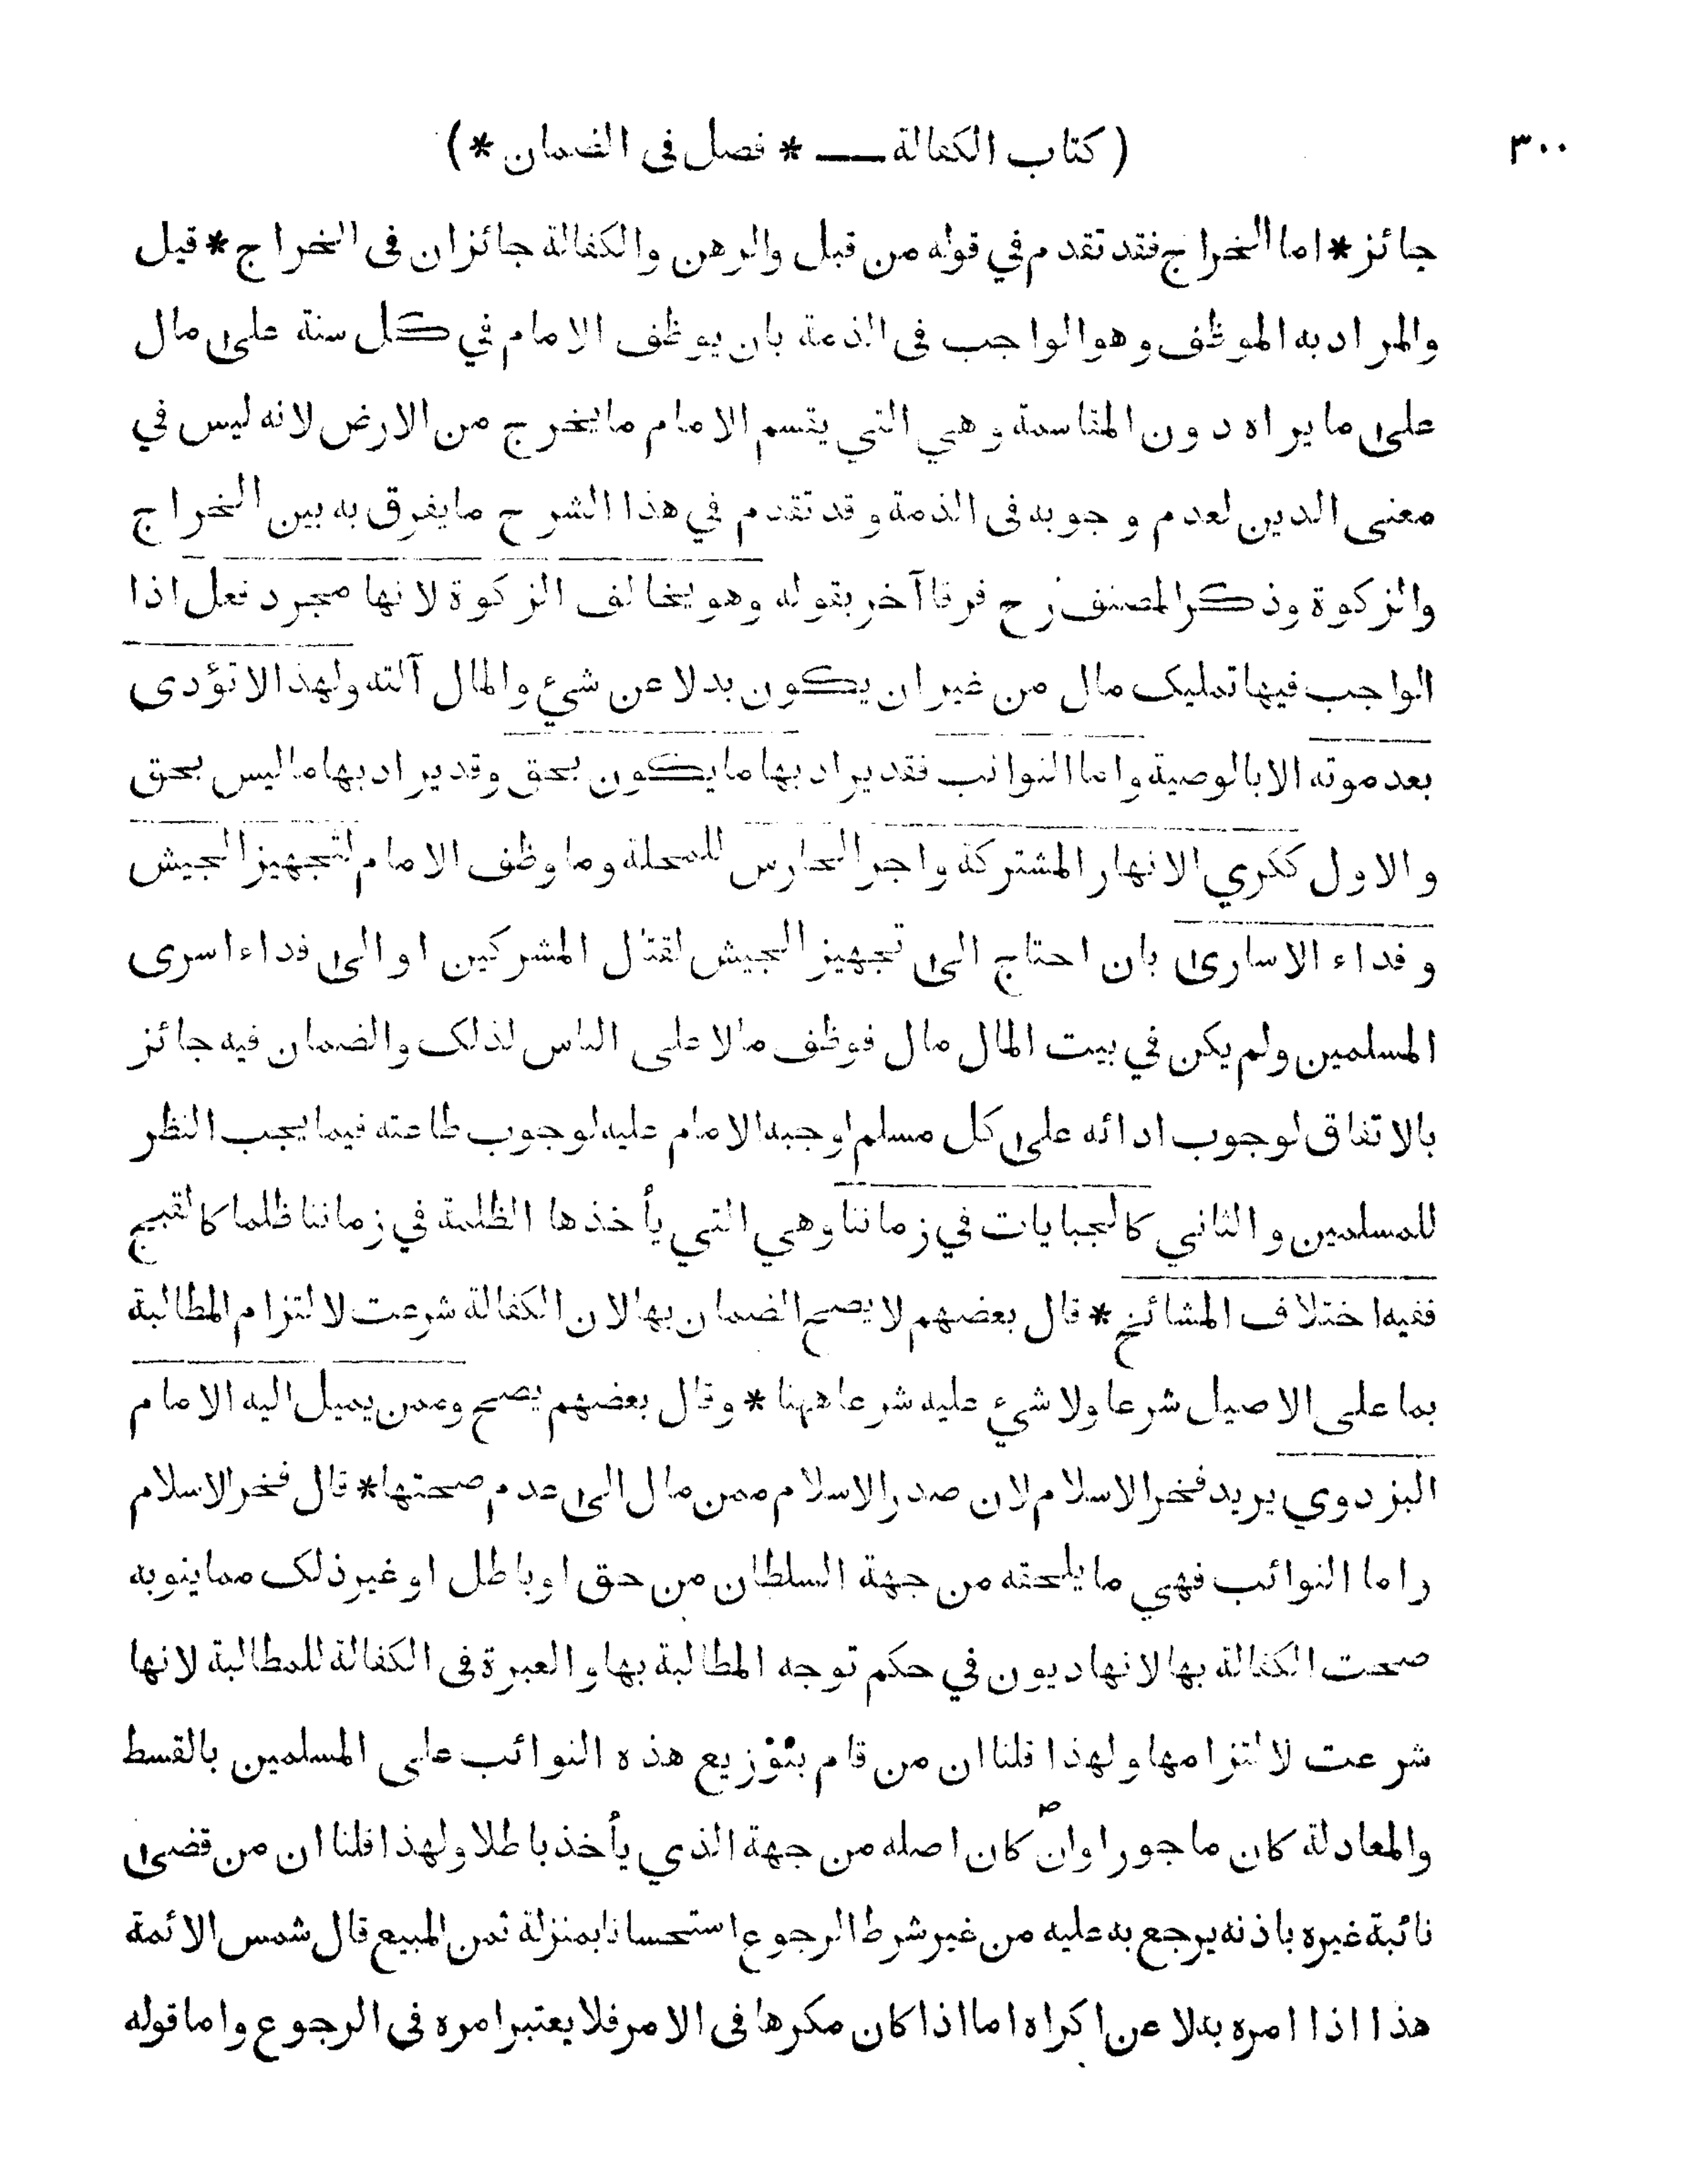 ٣٠٠
( كتاب الكفالة ــــ * فصل فى الضمان * )
جائز * اما الخراج فقد تقدم في قوله من قبل والرهن والكفالة جائزان فى الخراج * قيل
والمراد به الموظف وهو الواجب فى الذمة بان يوظف الامام في كل سنة على مال
على ما يراه دون المقاسمة وهي التي يقسم الامام ما يخرج من الارض لانه ليس في
معنى الدين لعدم وجوبه فى الذمة وقد تقدم في هذا الشرح ما يفرق به بين الخراج
والزكوة وذكر المصنف رح فرقا آخر بقوله وهو يخالف الزكوة لانها مجرد فعل اذا
الواجب فيها تمليك مال من غير ان يكون بدلا عن شيء والمال آلته ولهذا لا تؤدى
بعد موته الا بالوصية واما النوائب فقد يراد بها ما يكون بحق وقد يراد بها ما ليس بحق
والاول ككري الانهار المشتركة واجر الحارس للمحلة وما وظف الامام لتجهيز الجيش
وفداء الاسارى بان احتاج الى تجهيز الجيش لقتال المشركين او الى فداء اسرى
المسلمين ولم يكن في بيت المال مال فوظف مالا على الناس لذلك والضمان فيه جائز
بالاتفاق لوجوب ادائه على كل مسلم اوجبه الامام عليه لوجوب طاعته فيما يجب النظر
للمسلمين والثاني كالجبايات في زماننا وهي التي يأخذها الظلمة في زماننا ظلما كالقبيح
ففيه اختلاف المشائخ * قال بعضهم لا يصح الضمان بها لان الكفالة شرعت لالتزام المطالبة
بما على الاصيل شرعا ولا شيء عليه شرعا ههنا * وقال بعضهم يصح وممن يميل اليه الامام
البزدوي يريد فخر الاسلام لان صدر الاسلام ممن مال الى عدم صحتها * قال فخر الاسلام
واما النوائب فهي ما يلحقه من جهة السلطان من حق او باطل او غير ذلك مما ينوبه
صحت الكفالة بها لانها ديون في حكم توجه المطالبة بها والعبرة فى الكفالة للمطالبة لانها
شرعت لالتزامها ولهذا قلنا ان من قام بتوزيع هذه النوائب على المسلمين بالقسط
والمعادلة كان ماجورا وان كان اصله من جهة الذي يأخذ باطلا ولهذا قلنا ان من قضى
نائبة غيره باذنه يرجع به عليه من غير شرط الرجوع استحسانا بمنزلة ثمن المبيع قال شمس الائمة
هذا اذا امره بدلا عن اكراه اما اذا كان مكرها فى الامر فلا يعتبر امره فى الرجوع واما قوله